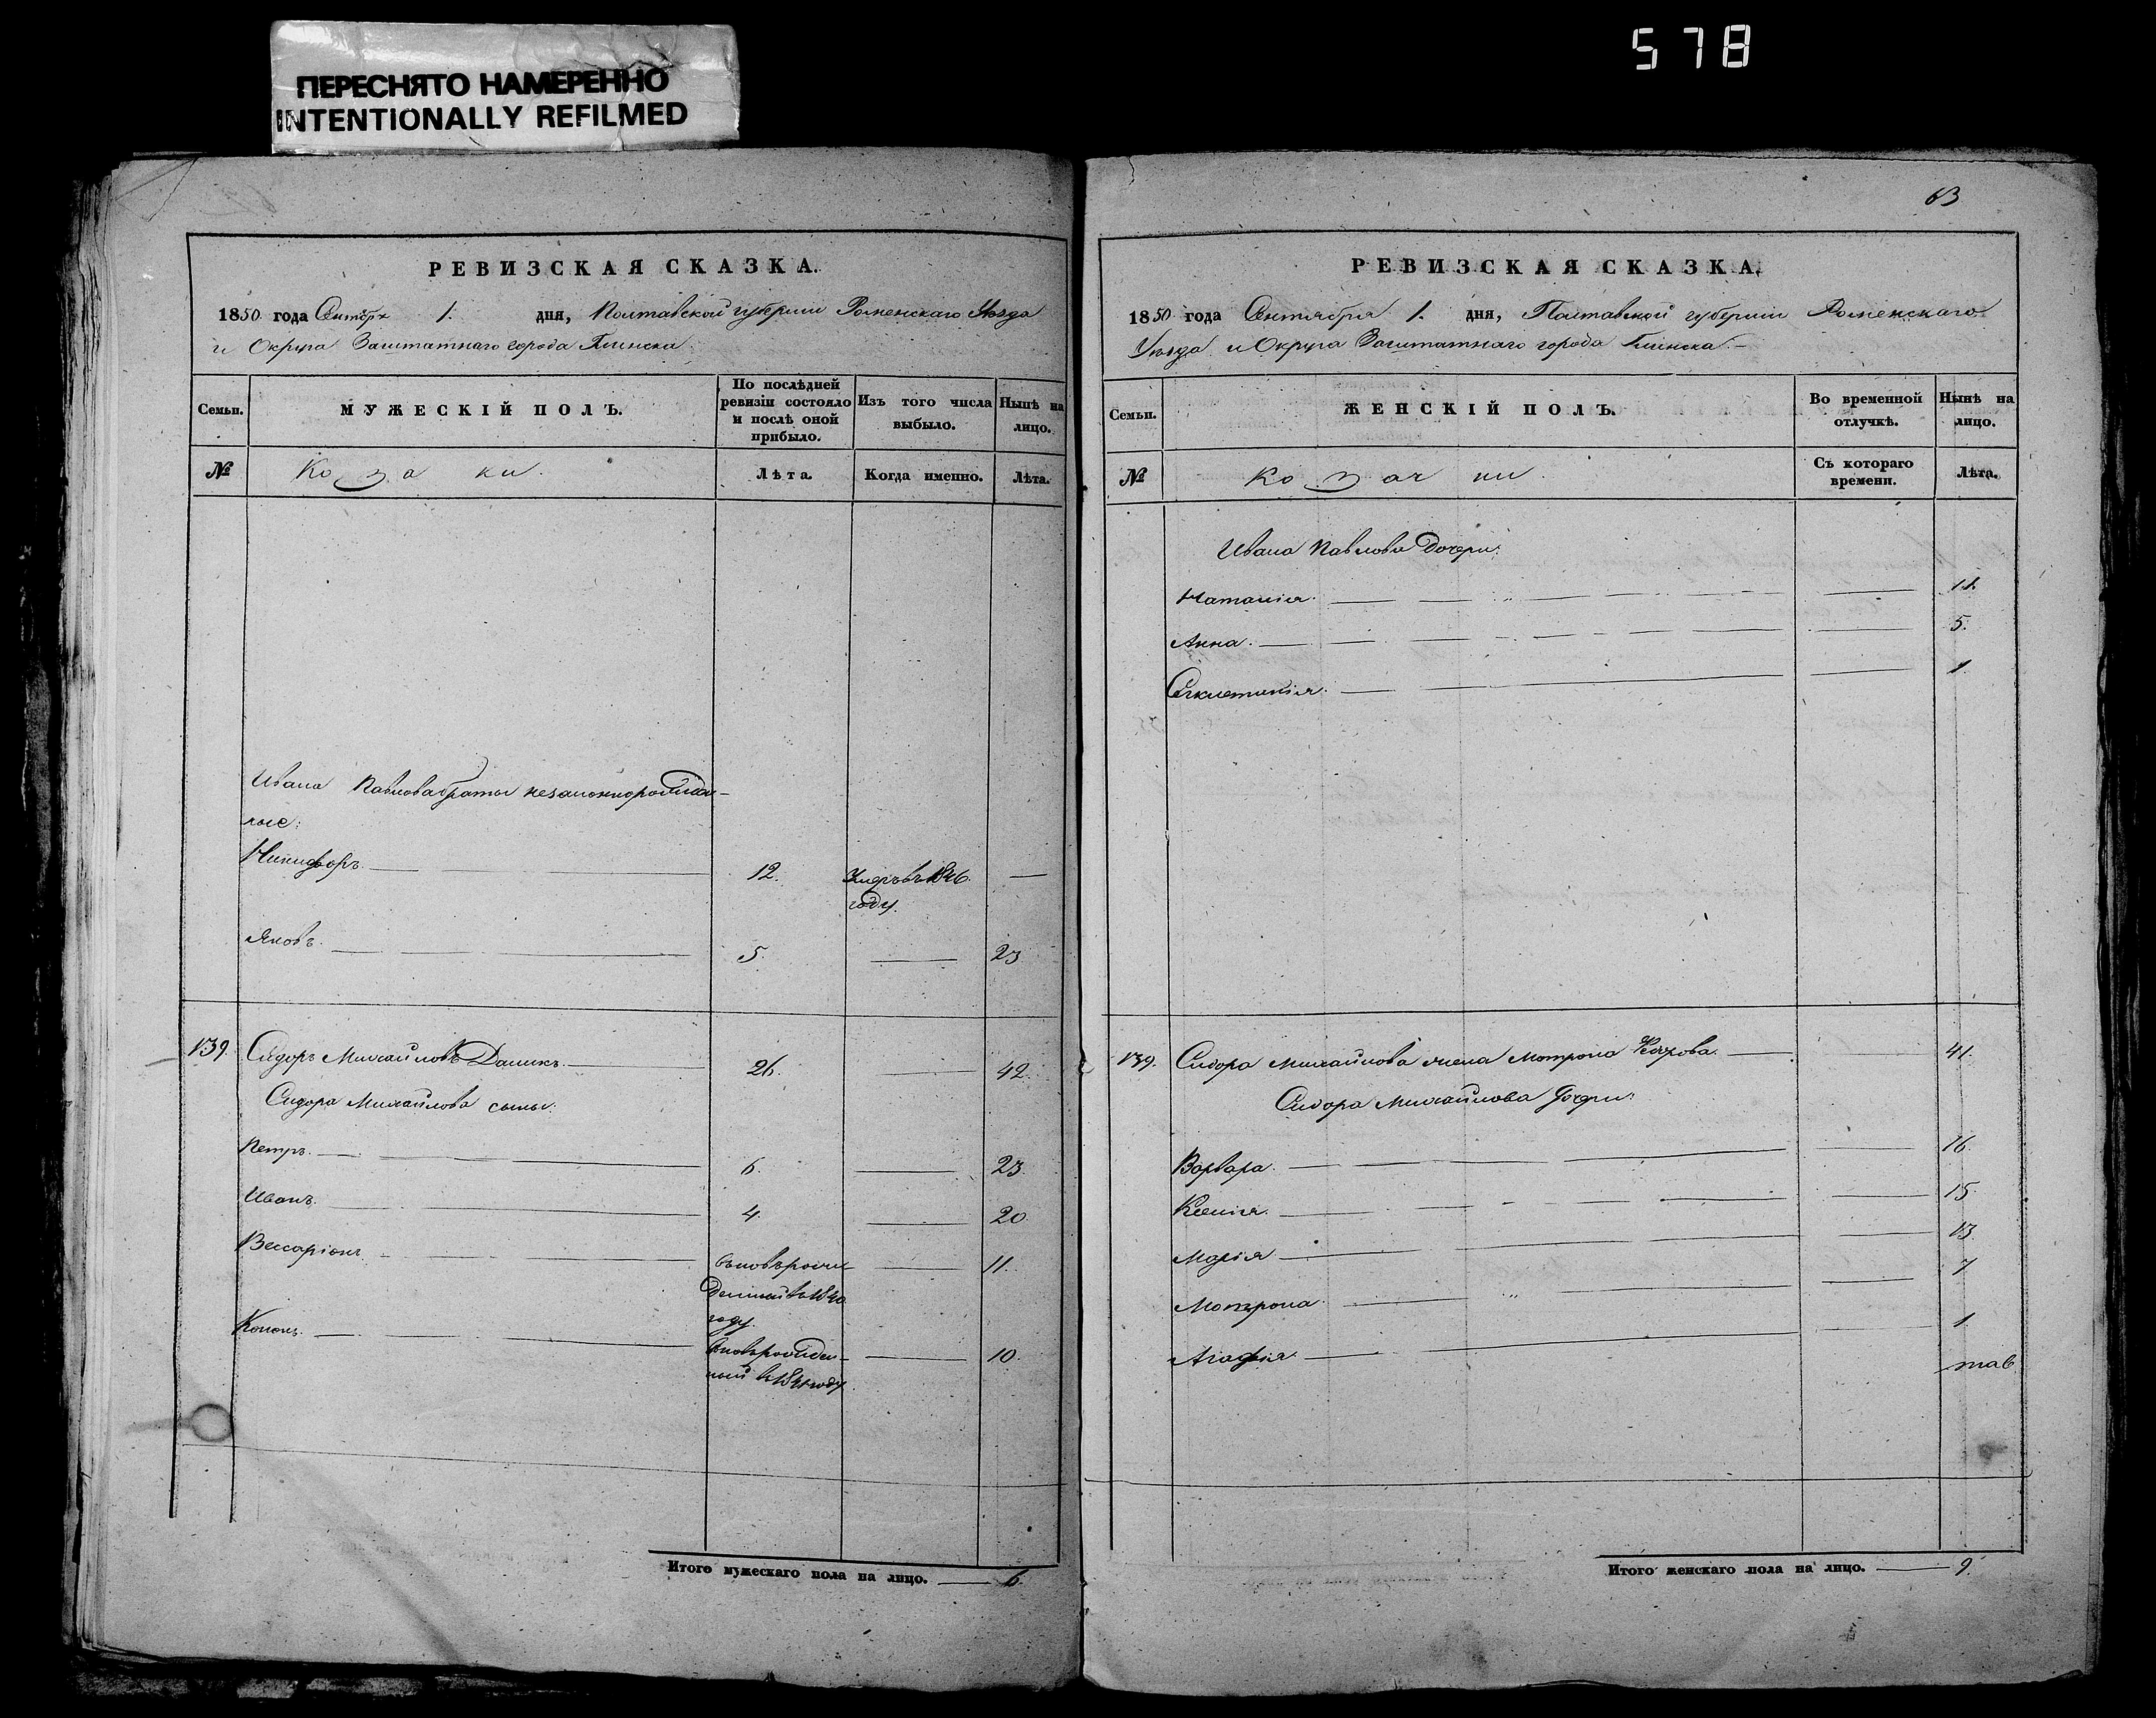 578
ПЕРЕСНЯТО НАМЕРЕННО
INTENTIONALLY REFILMED
РЕВИЗСКАЯ СКАЗКА.
1850 года Сентября 1. дня, Полтавской губерніи Роменскаго Уѣзда
и Округа Заштатнаго города Глинска.
Семьи.
МУЖЕСКІЙ ПОЛЪ.
По послѣдней ревизіи состояло и послѣ оной прибыло.
Изъ того числа выбыло.
Нынѣ на лицо.
№
Козаки.
Лѣта.
Когда именно.
Лѣта.
Ивана Павлова браты незаконнорожден-
ные:
Никифоръ. 12. Умеръ въ 1846.
году.
Яковъ. 5. 23
139. Сидоръ Михайловъ 26. 42.
Сидора Михайлова сыны:
Петръ. 6. 23.
Иванъ. 4. 20.
Вессаріонъ вновьрож- 11.
денный въ 1840
году.
Кононъ. вновьрожден- 10.
ный въ 1841 году.
Итого мужескаго пола на лицо. 6.
63
РЕВИЗСКАЯ СКАЗКА.
1850 года Сентября 1. дня, Полтавской губерніи Роменскаго
Уѣзда и Округа Заштатнаго города Глинска.
Семьи.
ЖЕНСКІЙ ПОЛЪ.
Во временной отлучкѣ.
Нынѣ на лицо.
№
Козачки.
Съ котораго времени.
Лѣта.
Ивана Павлова дочери:
Наталія. 11.
Анна. 5.
1.
139. Сидора Михайлова жена Мотрона 41.
Сидора Михайлова дочери:
Варвара. 16.
Ксенія. 15.
Марія 13.
Мотрона. 7
Агафія. 1.
Итого женскаго пола на лицо. 9.